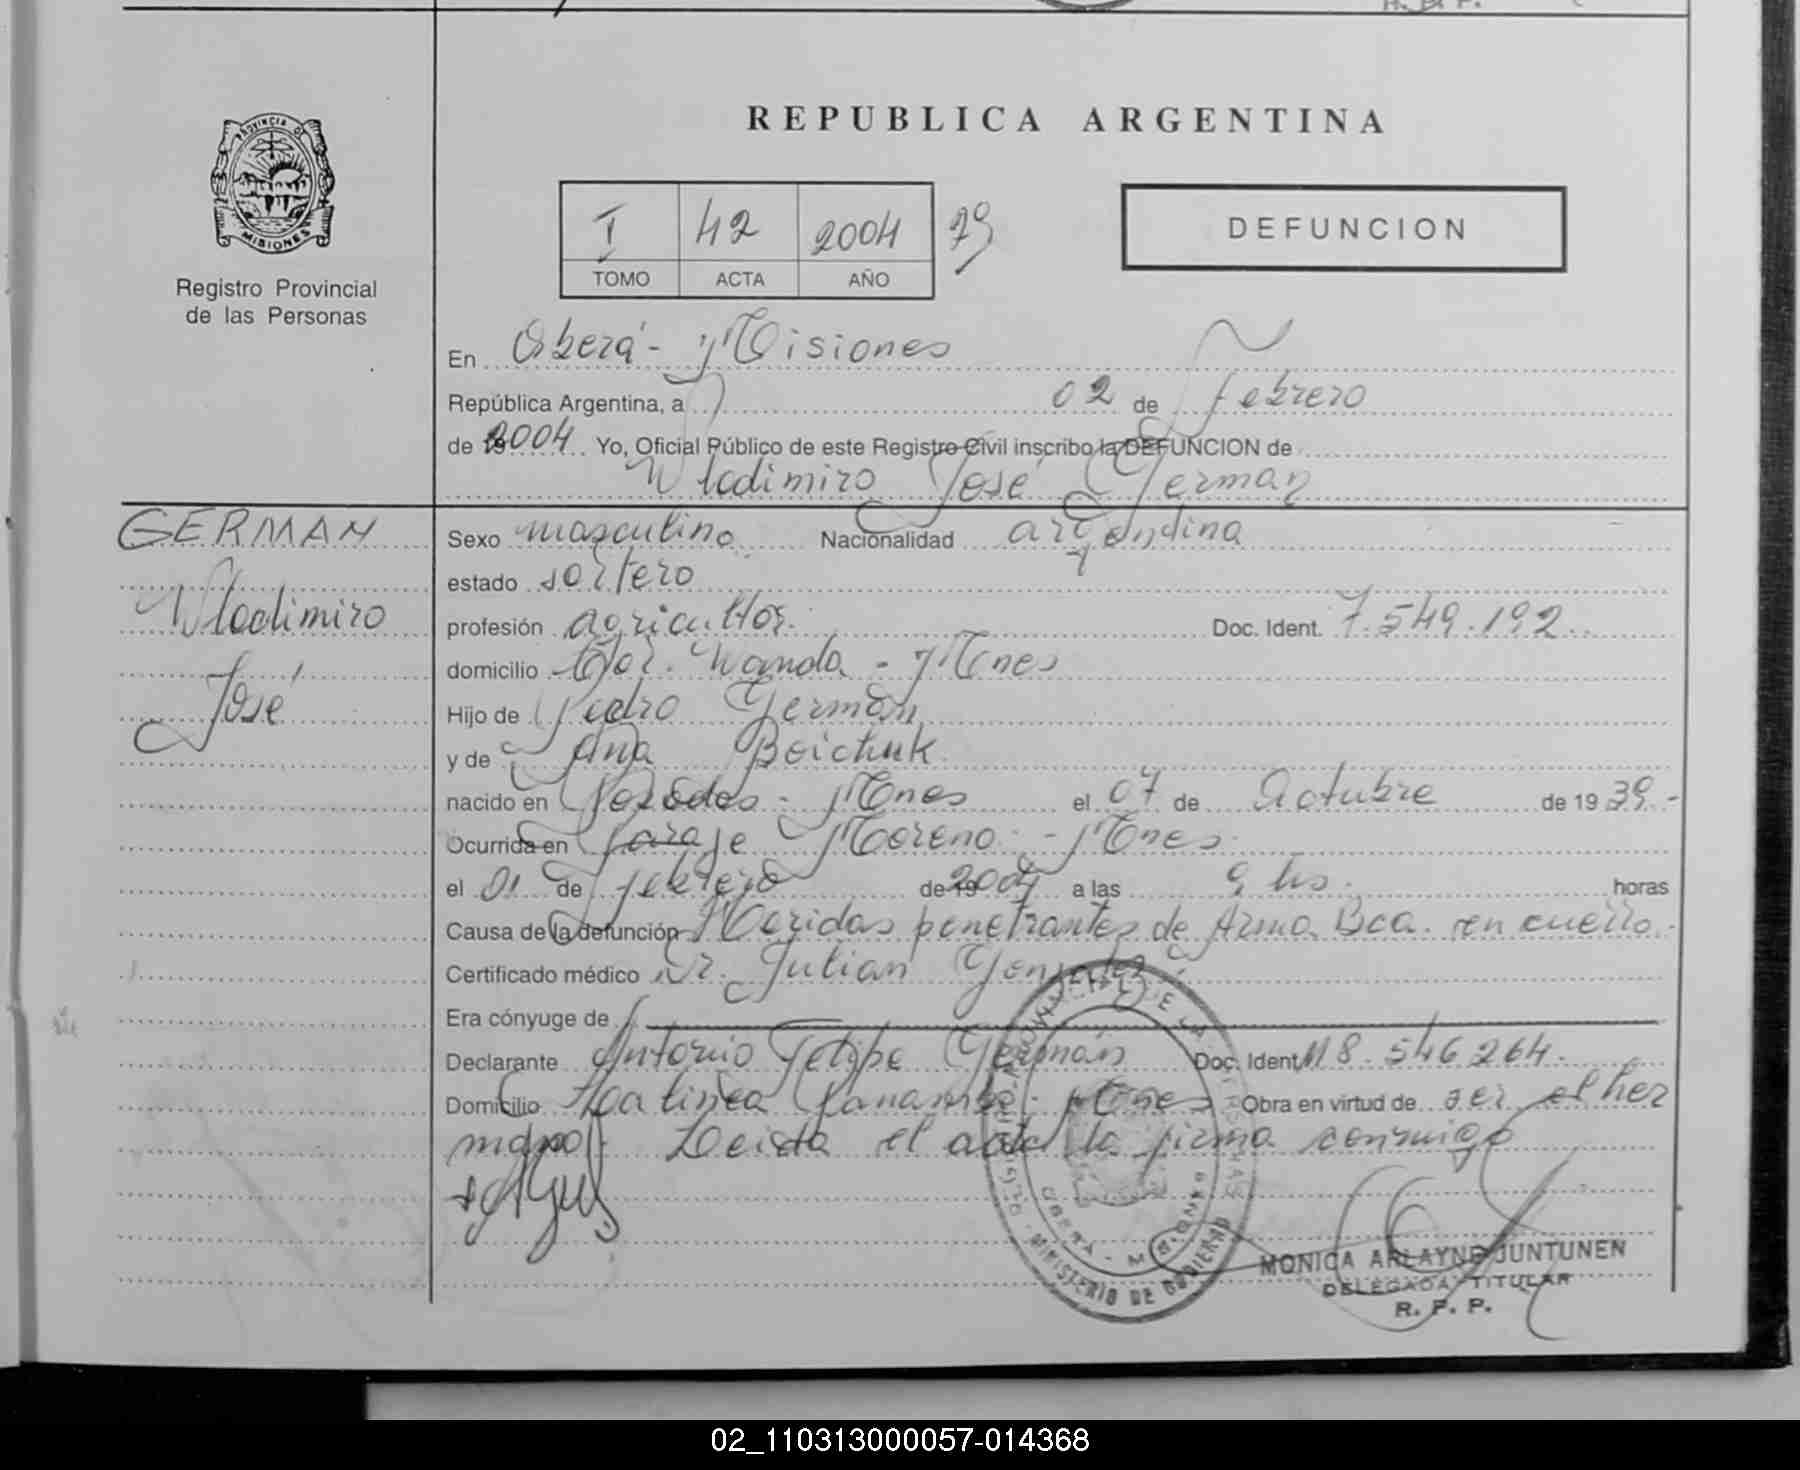 PROVINCIA DE
MISIONES
Registro Provincial
de las Personas
REPUBLICA ARGENTINA
I 42 2004 79
TOMO ACTA AÑO
DEFUNCION
En Oberá - Misiones
República Argentina, a 02 de Febrero
de 2004 Yo, Oficial Público de este Registro Civil inscribo la DEFUNCION de
Wladimiro José German
GERMAN
Wladimiro
José
Sexo masculino Nacionalidad argentina
estado soltero
profesión agricultor. Doc. Ident. 7.549.192
domicilio Wanda - Mnes
Hijo de Pedro German
y de Ana Boichuk
nacido en Posadas - Mnes el 07 de Octubre de 19 39.-
Ocurrida en Paraje Moreno - Mnes
el 01 de febrero de 2004 a las 9 hs. horas
Causa de la defunción Heridas penetrantes de Arma Bca. en cuello.-
Certificado médico Dr. Julian Gonzalez
Era cónyuge de
Declarante Antonio Felipe Germán Doc. Ident. M 8.546264.
Domicilio Panambí - Mnes Obra en virtud de ser el her
mano. Leida el acta la firma conmigo
MINISTERIO DE GOBIERNO
OBERA - MISIONES
MONICA ARLAYNE JUNTUNEN
DELEGADA TITULAR
R. P. P.
02_110313000057-014368